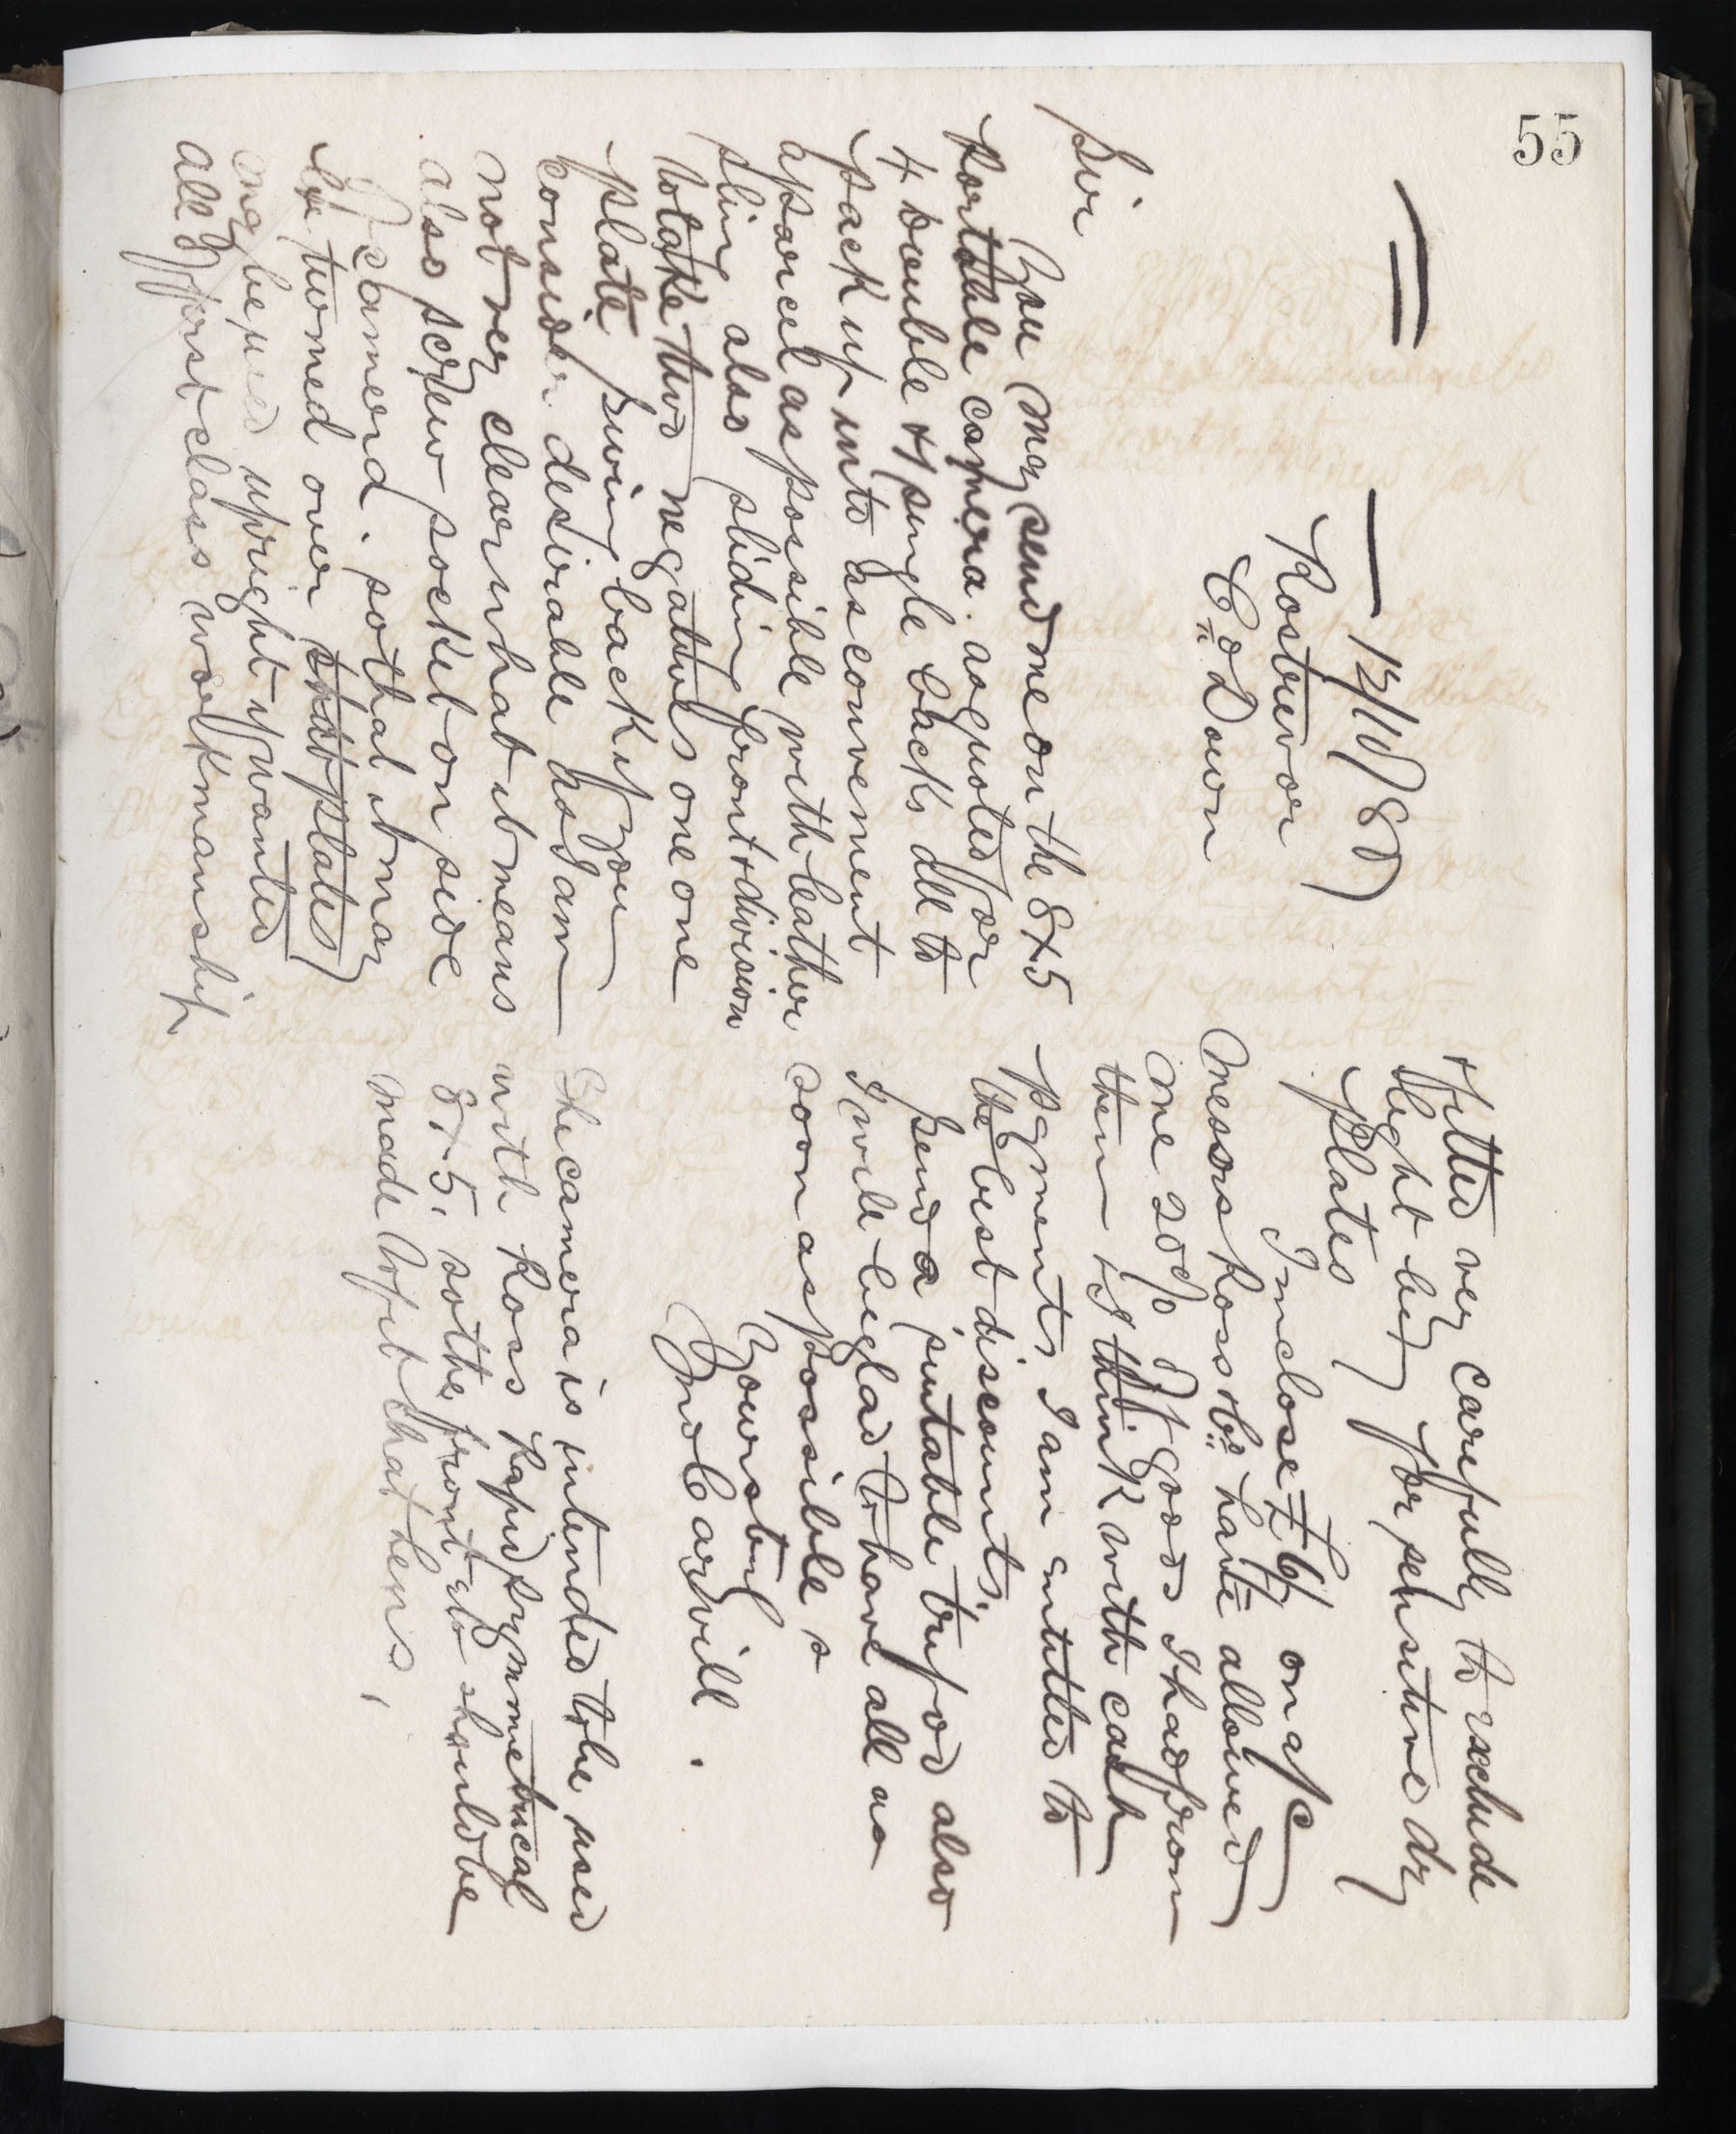 55
12/10/80
Rostrevor
Co Down
Sir
You may send me on the 8x5
portable camera. as quoted for
4 double & 1 single backs all to
pack up into as convenient
a parcel as possible with leather
sling also sliding front & division
to take two negatives one one
plate swing back if you
consider desirable as I am
not very clear what it means
also screw socket on side
of camera. so that it may
be turned over
may be used upright if wanted
all of first class workmanship
& fitted very carefully to exclude
light being for sensitive dry
plates
I inclose £6/ on a/c
Messrs Ross & Co have allowed
me 20% of goods I had from
them & I think with cash
payments I am entitled to
the best discounts.
Send a suitable tripod also
I will be glad to have all as
soon as possible
Yours truly
Jno Cargill.
The camera is intended to be used
with Ross Rapid Symmetrical
8x5, so the front etc should be
made to fit that lens,